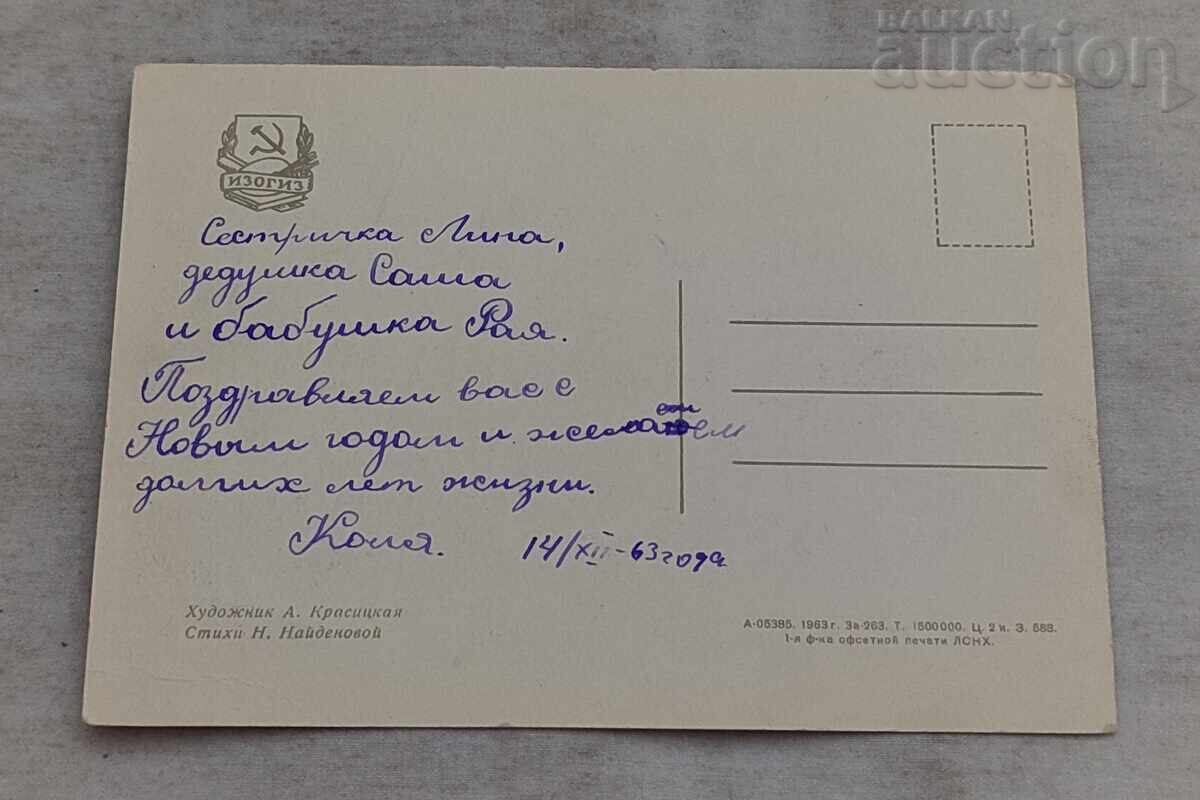 BALKAN
auction
ИЗОГИЗ
Сестричка Лина,
дедушка Саша
и бабушка Рая.
Поздравляем вас с
Новым годом и
долгих лет жизни.
Коля. 14/XII-63 года
Художник А. Красицкая
Стихи Н. Найденовой
А-05395. 1963 г. За-263. Т. 1500000. Ц. 2 к. З. 583.
1-я ф-ка офсетной печати ЛСНХ.